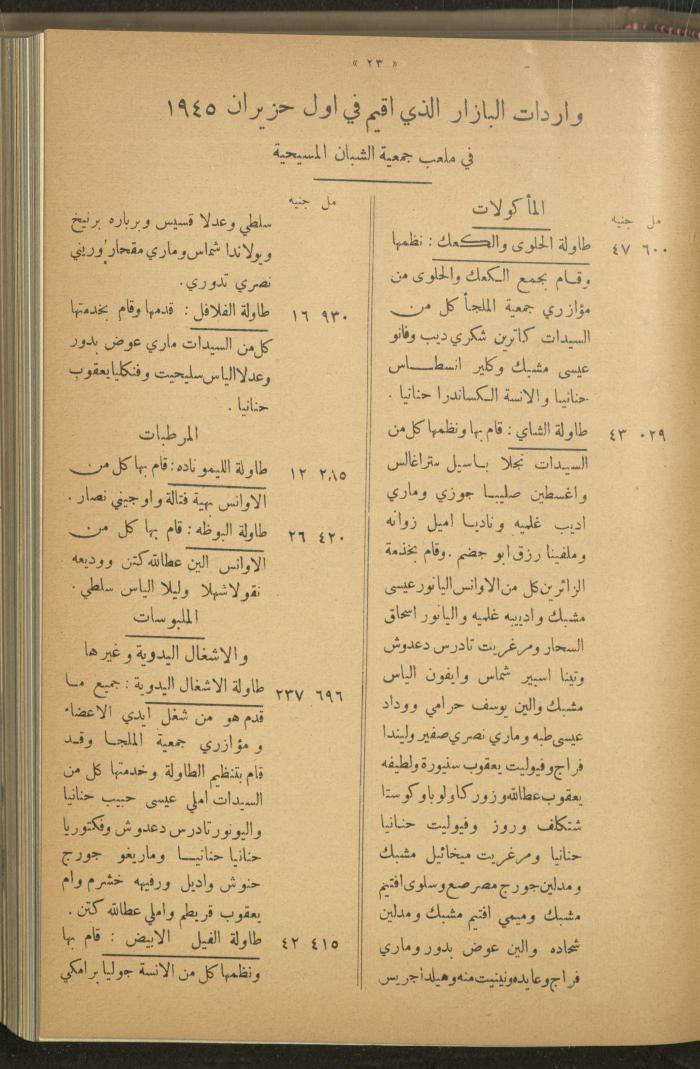 « ٢٣ »
واردات البازار الذي اقيم في اول حزيران ١٩٤٥
في ملعب جمعية الشبان المسيحية
مل جنيه
المأكولات
٦٠٠ ٤٧ طاولة الحلوى والكعك : نظمها
وقام بجمع الكعك والحلوى من
مؤازري جمعية الملجأ كل من
السيدات كاترين شكري ديب وفانو
عيسى مشبك وكلير انسطاس
حنانيا والانسة الكساندرا حنانيا .
٠٢٩ ٤٣ طاولة الشاي : قام بها ونظمها كل من
السيدات نجلا باسيل ستراغالس
واغسطين صليبا جوزي وماري
اديب غلميه وناديا اميل زوانه
وملفينا رزق ابو جضم . وقام بخذمة
الزائرين كل من الاوانس اليانور عيسى
مشبك واديبه غلميه واليانور اسحاق
السحار ومرغريت تادرس دعدوش
وتينا اسبير شماس وايفون الياس
مشبك والين يوسف حرامي ووداد
عيسى طبه وماري نصري صفير وليندا
فراج وفيوليت يعقوب سنيورة ولطيفه
يعقوب عطالله وزور كاولو باوكوستا
شتكلف وروز وفيوليت حنانيا
حنانيا ومرغريت ميخائيل مشبك
ومدلين جورج مصرصع وسلوى افتيم
مشبك وميمي افتيم مشبك ومدلين
شحاده والين عوض بدور وماري
فراج وعايده ونينيت منه وهيلدا جريس
مل جنيه
سلطي وعدلا قسيس وبرباره برنيخ
ويولاندا شماس وماري مقحار وريني
نصري تدوري .
٩٣٠ ١٦ طاولة الفلافل : قدمها وقام بخدمتها
كل من السيدات ماري عوض بدور
وعدلا الياس سليحيت وفنكليا يعقوب
حنانيا .
المرطبات
٢٨٥ ١٢ طاولة الليموناده : قام بها كل من
الاوانس بهية فتالة واوجيني نصار .
٤٢٠ ٢٦ طاولة البوظه : قام بها كل من
الاوانس الين عطالله كتن ووديعه
نقولا شهلا وليلا الياس سلطي .
الملبوسات
والاشغال اليدوية وغيرها
٦٩٦ ٢٣٧ طاولة الاشغال اليدوية : جميع ما
قدم هو من شغل ايدي الاعضاء
ومؤازري جمعية الملجا وقد
قام بتنظيم الطاولة وخدمتها كل من
السيدات املي عيسى حبيب حنانيا
واليونور تادرس دعدوش وفكتوريا
حنانيا حنانيا وماريغو جورج
حنوش واديل ورفيهه خشرم وام
يعقوب قريطم واملي عطالله كتن .
٤١٥ ٤٢ طاولة الفيل الابيض : قام بها
ونظمها كل من الانسة جوليا برامكي